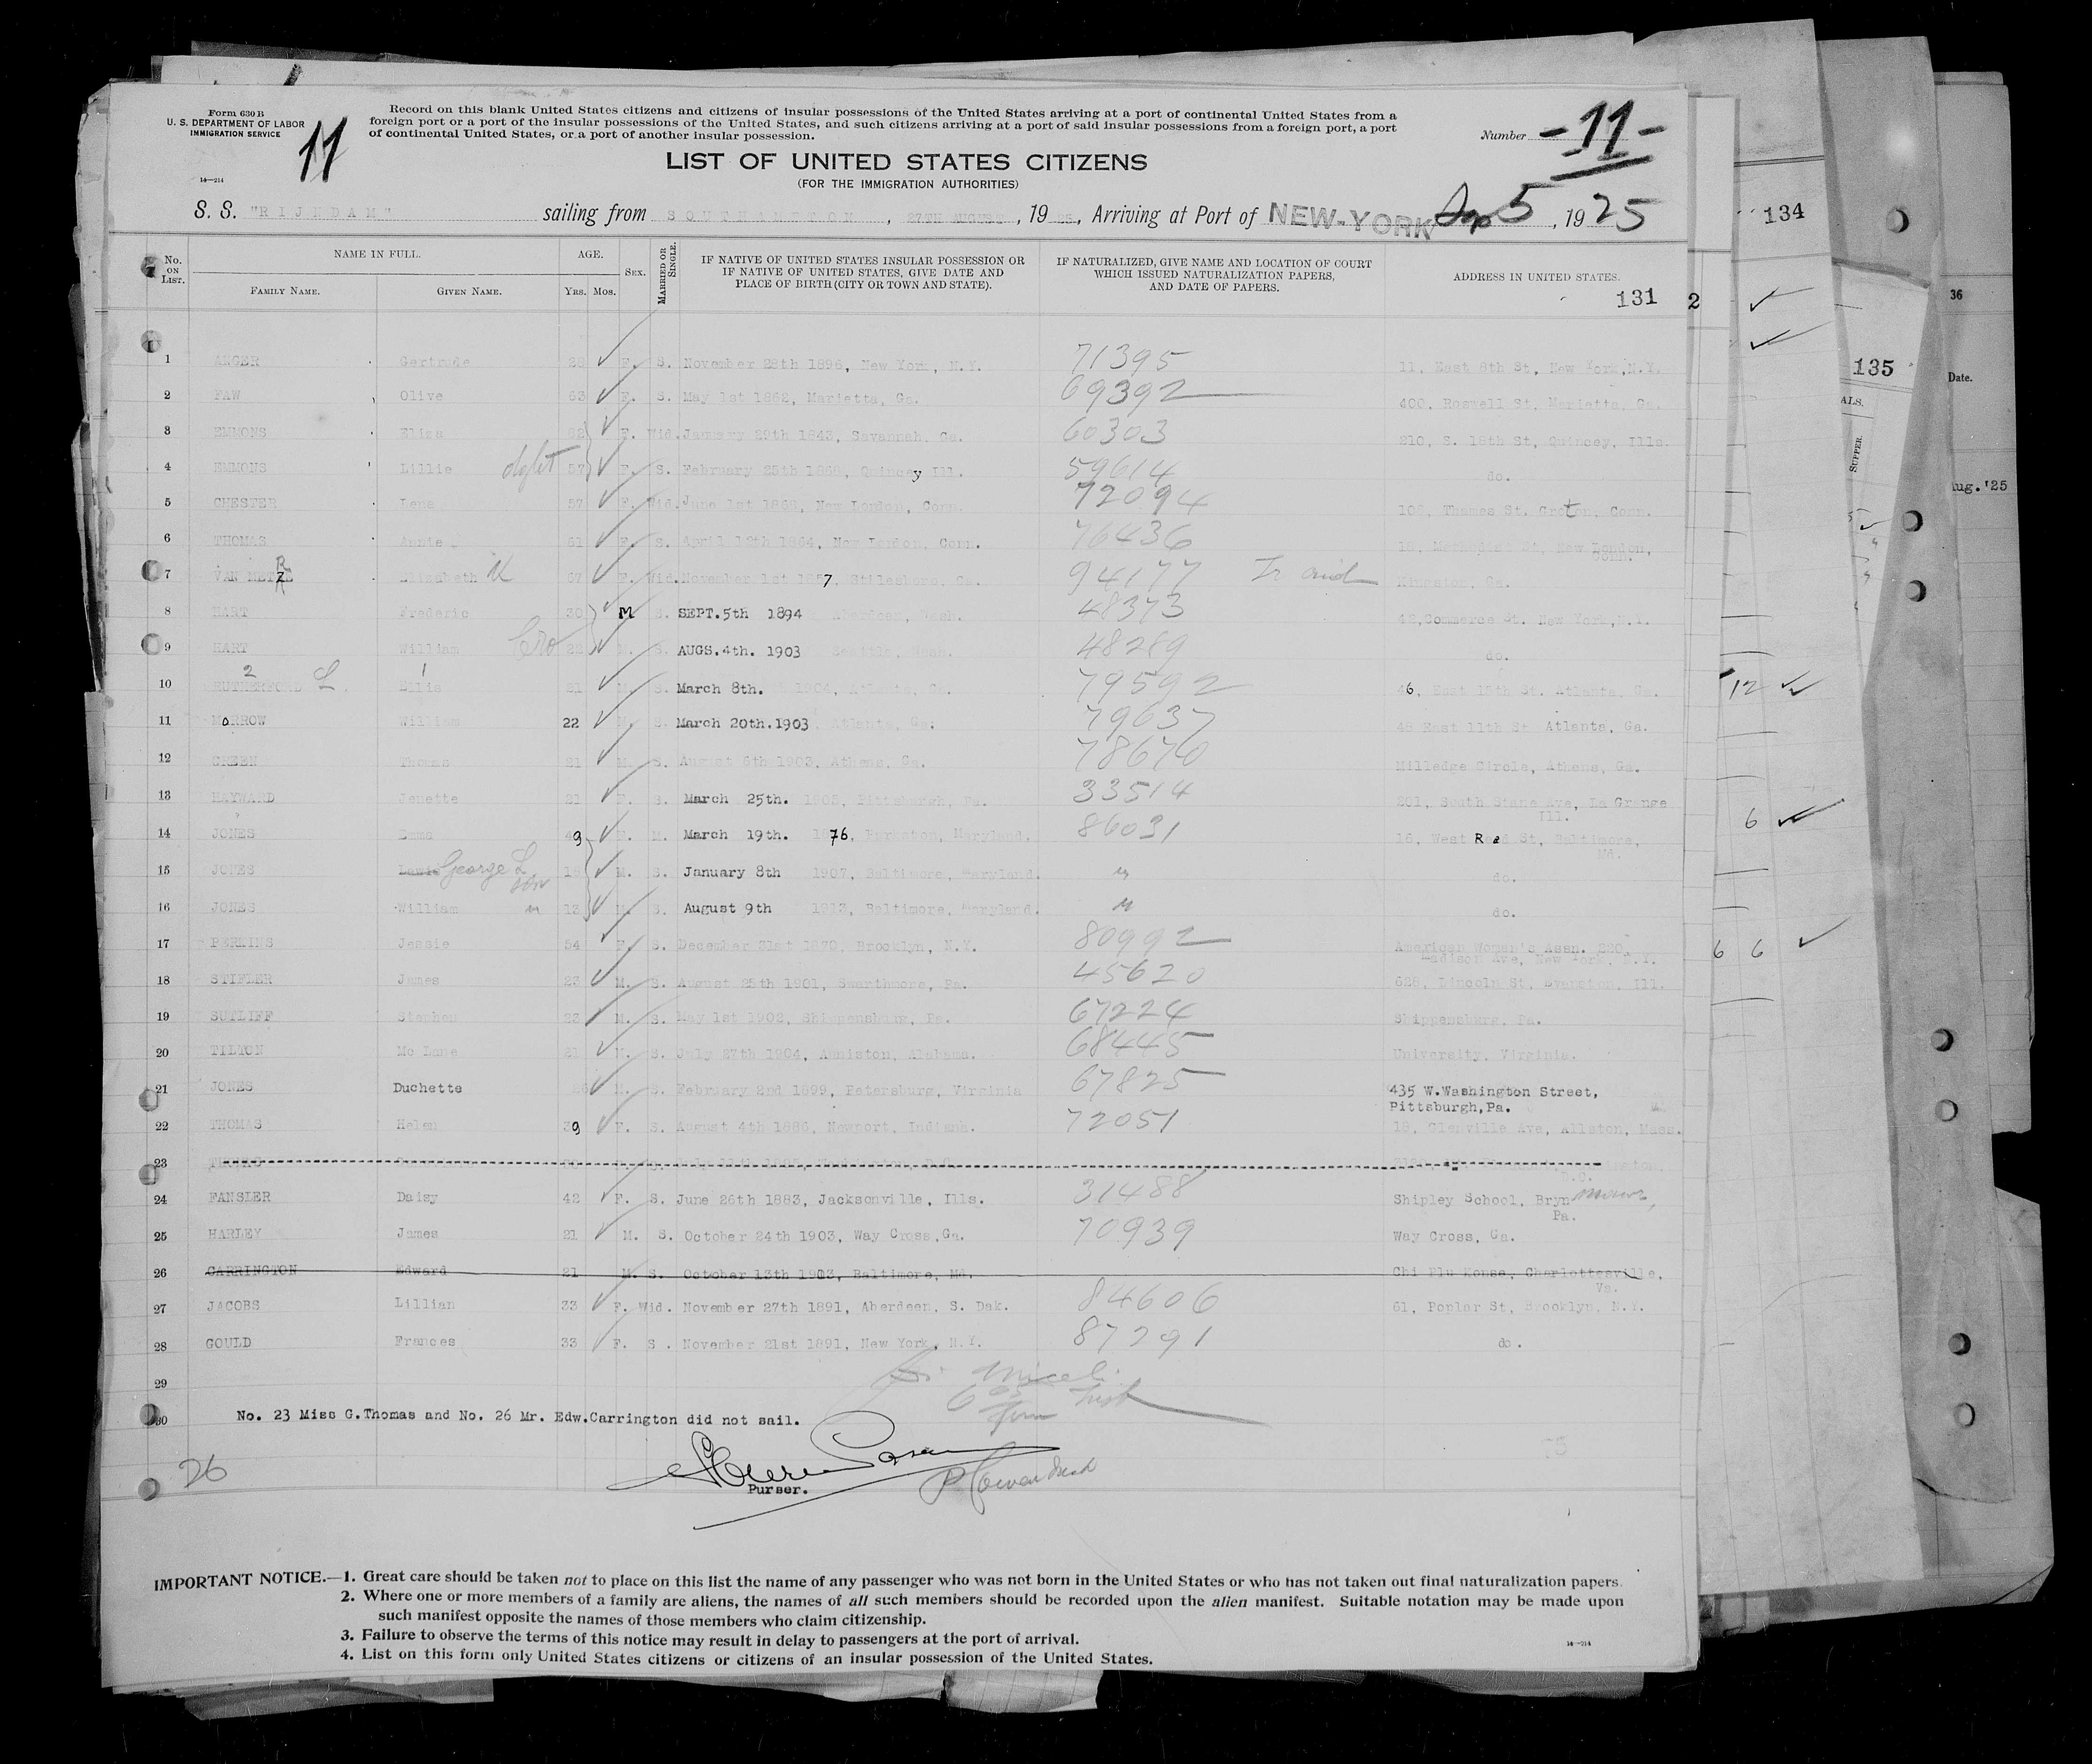 Form 630 B
U. S. DEPARTMENT OF LABOR
IMMIGRATION SERVICE
11
14—214
Record on this blank United States citizens and citizens of insular possessions of the United States arriving at a port of continental United States from a
foreign port or a port of the insular possessions of the United States, and such citizens arriving at a port of said insular possessions from a foreign port, a port
of continental United States, or a port of another insular possession.
Number -11-
LIST OF UNITED STATES CITIZENS
(FOR THE IMMIGRATION AUTHORITIES)
S. S. "RIJNDAM" sailing from SOUTHAMPTON, 27TH AUGUST, 1925, Arriving at Port of NEW-YORK Sep 5, 1925
No. ON LIST. NAME IN FULL. AGE. SEX. MARRIED OR SINGLE. IF NATIVE OF UNITED STATES INSULAR POSSESSION OR IF NATIVE OF UNITED STATES, GIVE DATE AND PLACE OF BIRTH (CITY OR TOWN AND STATE). IF NATURALIZED, GIVE NAME AND LOCATION OF COURT WHICH ISSUED NATURALIZATION PAPERS, AND DATE OF PAPERS. ADDRESS IN UNITED STATES.
FAMILY NAME. GIVEN NAME. YRS. MOS.
131 2
1 ANGER Gertrude 28 F. S. November 28th 1896, New York, N.Y. 71395 11, East 8th St, New York, N.Y.
2 FAW Olive 63 F. S. May 1st 1862, Marietta, Ga. 69392 400, Roswell St, Marietta, Ga.
3 EMMONS Eliza 82 F. Wid. January 29th 1843, Savannah, Ga. 60303 210, S. 18th St, Quincey, Ills.
4 EMMONS Lillie 57 F. S. February 25th 1868, Quincey Ill. 59614 do.
5 CHESTER Lena 57 F. Wid. June 1st 1868, New London, Conn. 72094 108, Thames St. Groton, Conn.
6 THOMAS Annie 61 F. S. April 12th 1864, New London, Conn. 76436 New London, Conn.
7 VAN Elizabeth 67 F. Wid. November 1st 1857, Stilesboro, Ga. 94177 Kingston, Ga.
8 HART Frederic 30 M S. SEPT.5th 1894 Aberdeen, Wash. 48373 42, Commerce St. New York, N.Y.
9 HART William Bro 22 M. S. AUGS.4th. 1903 Seattle, Wash. 48289 do.
10 RUTHERFORD L. Ellis 21 M. S. March 8th. 1904, Atlanta, Ga. 79592 46, East 15th St. Atlanta, Ga.
11 MORROW William 22 M. S. March 20th.1903 Atlanta, Ga. 79637 48 East 11th St Atlanta, Ga.
12 GREEN Thomas 21 M. S. August 6th 1903, Athens, Ga. 78670 Milledge Circle, Athens, Ga.
13 HAYWARD Jenette 21 F. S. March 25th. Pittsburgh, Pa. 33514 201, South Stone Ave, La Grange Ill.
14 JONES Emma 49 F. M. March 19th. 1876, Maryland. 86031 16, West Read St, Baltimore, Md.
15 JONES Lewis George L son 18 M. S. January 8th 1907, Baltimore, Maryland. " do.
16 JONES William " 12 M. S. August 9th 1913, Baltimore, Maryland. " do.
17 PERKINS Jessie 54 F. S. December 31st 1870, Brooklyn, N.Y. 80992 American Woman's Assn. 220, Madison Ave, New York, N.Y.
18 STIFLER James 23 M. S. August 25th 1901, Swarthmore, Pa. 45620 628, Lincoln St, Evanston, Ill.
19 SUTLIFF Stephen 23 M. S. May 1st 1902, Shippensburg, Pa. 67224 Shippensburg, Pa.
20 TILTON Mc Lane 21 M. S. July 27th 1904, Anniston, Alabama. 68445 University, Virginia.
21 JONES Duchette 26 M. S. February 2nd 1899, Petersburg, Virginia 67825 435 W.Washington Street, Pittsburgh,Pa.
22 THOMAS Helen 39 F. S. August 4th 1886, Newport, Indiana. 72051 18, Glenville Ave, Allston, Mass.
23 THOMAS
24 FANSLER Daisy 42 F. S. June 26th 1883, Jacksonville, Ills. 31488 Shipley School, Bryn mawr, Pa.
25 HARLEY James 21 M. S. October 24th 1903, Way Cross,Ga. 70939 Way Cross, Ga.
26 CARRINGTON Edward 21 M. S. October 13th 1903, Baltimore, Md. Chi Phi House, Charlottesville, Va.
27 JACOBS Lillian 33 F. Wid. November 27th 1891, Aberdeen, S. Dak. 84606 61, Poplar St, Brooklyn, N.Y.
28 GOULD Frances 33 F. S. November 21st 1891, New York, N.Y. 87291 do.
29
30 No. 23 Miss G.Thomas and No. 26 Mr. Edw.Carrington did not sail.
26
Purser.
75
IMPORTANT NOTICE.—1. Great care should be taken not to place on this list the name of any passenger who was not born in the United States or who has not taken out final naturalization papers.
2. Where one or more members of a family are aliens, the names of all such members should be recorded upon the alien manifest. Suitable notation may be made upon
such manifest opposite the names of those members who claim citizenship.
3. Failure to observe the terms of this notice may result in delay to passengers at the port of arrival.
4. List on this form only United States citizens or citizens of an insular possession of the United States.
14—214
134
12
6
6 6
135
ALS.
SUPPER.
36
Date.
Aug. '25